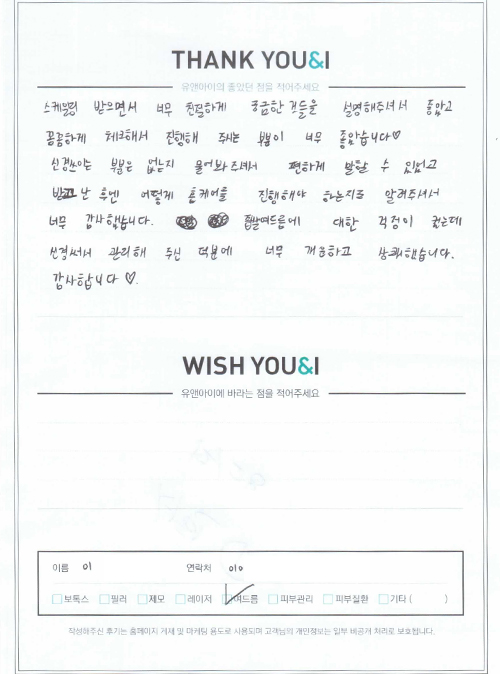 THANK YOU&I
유앤아이의 좋았던 점을 적어주세요
스케일링 받으면서 너무 친절하게 궁금한 것들을 설명해주셔서 좋았고
꼼꼼하게 체크해서 진행해 주시는 부분이 너무 좋았습니다♡
신경쓰이는 부분은 없는지 물어봐 주셔서 편하게 말할 수 있었고
받고 난 후엔 어떻게 홈케어를 진행해야 하는지도 알려주셔서
너무 감사했습니다. 좁쌀여드름에 대한 걱정이 컸는데
신경써서 관리해 주신 덕분에 너무 개운하고 상쾌했습니다.
감사합니다 ♡.
WISH YOU&I
유앤아이에 바라는 점을 적어주세요
이름 이 연락처 010
보톡스 필러 제모 레이저 여드름 피부관리 피부질환 기타 ( )
작성해주신 후기는 홈페이지 게재 및 마케팅 용도로 사용되며 고객님의 개인정보는 일부 비공개 처리로 보호됩니다.